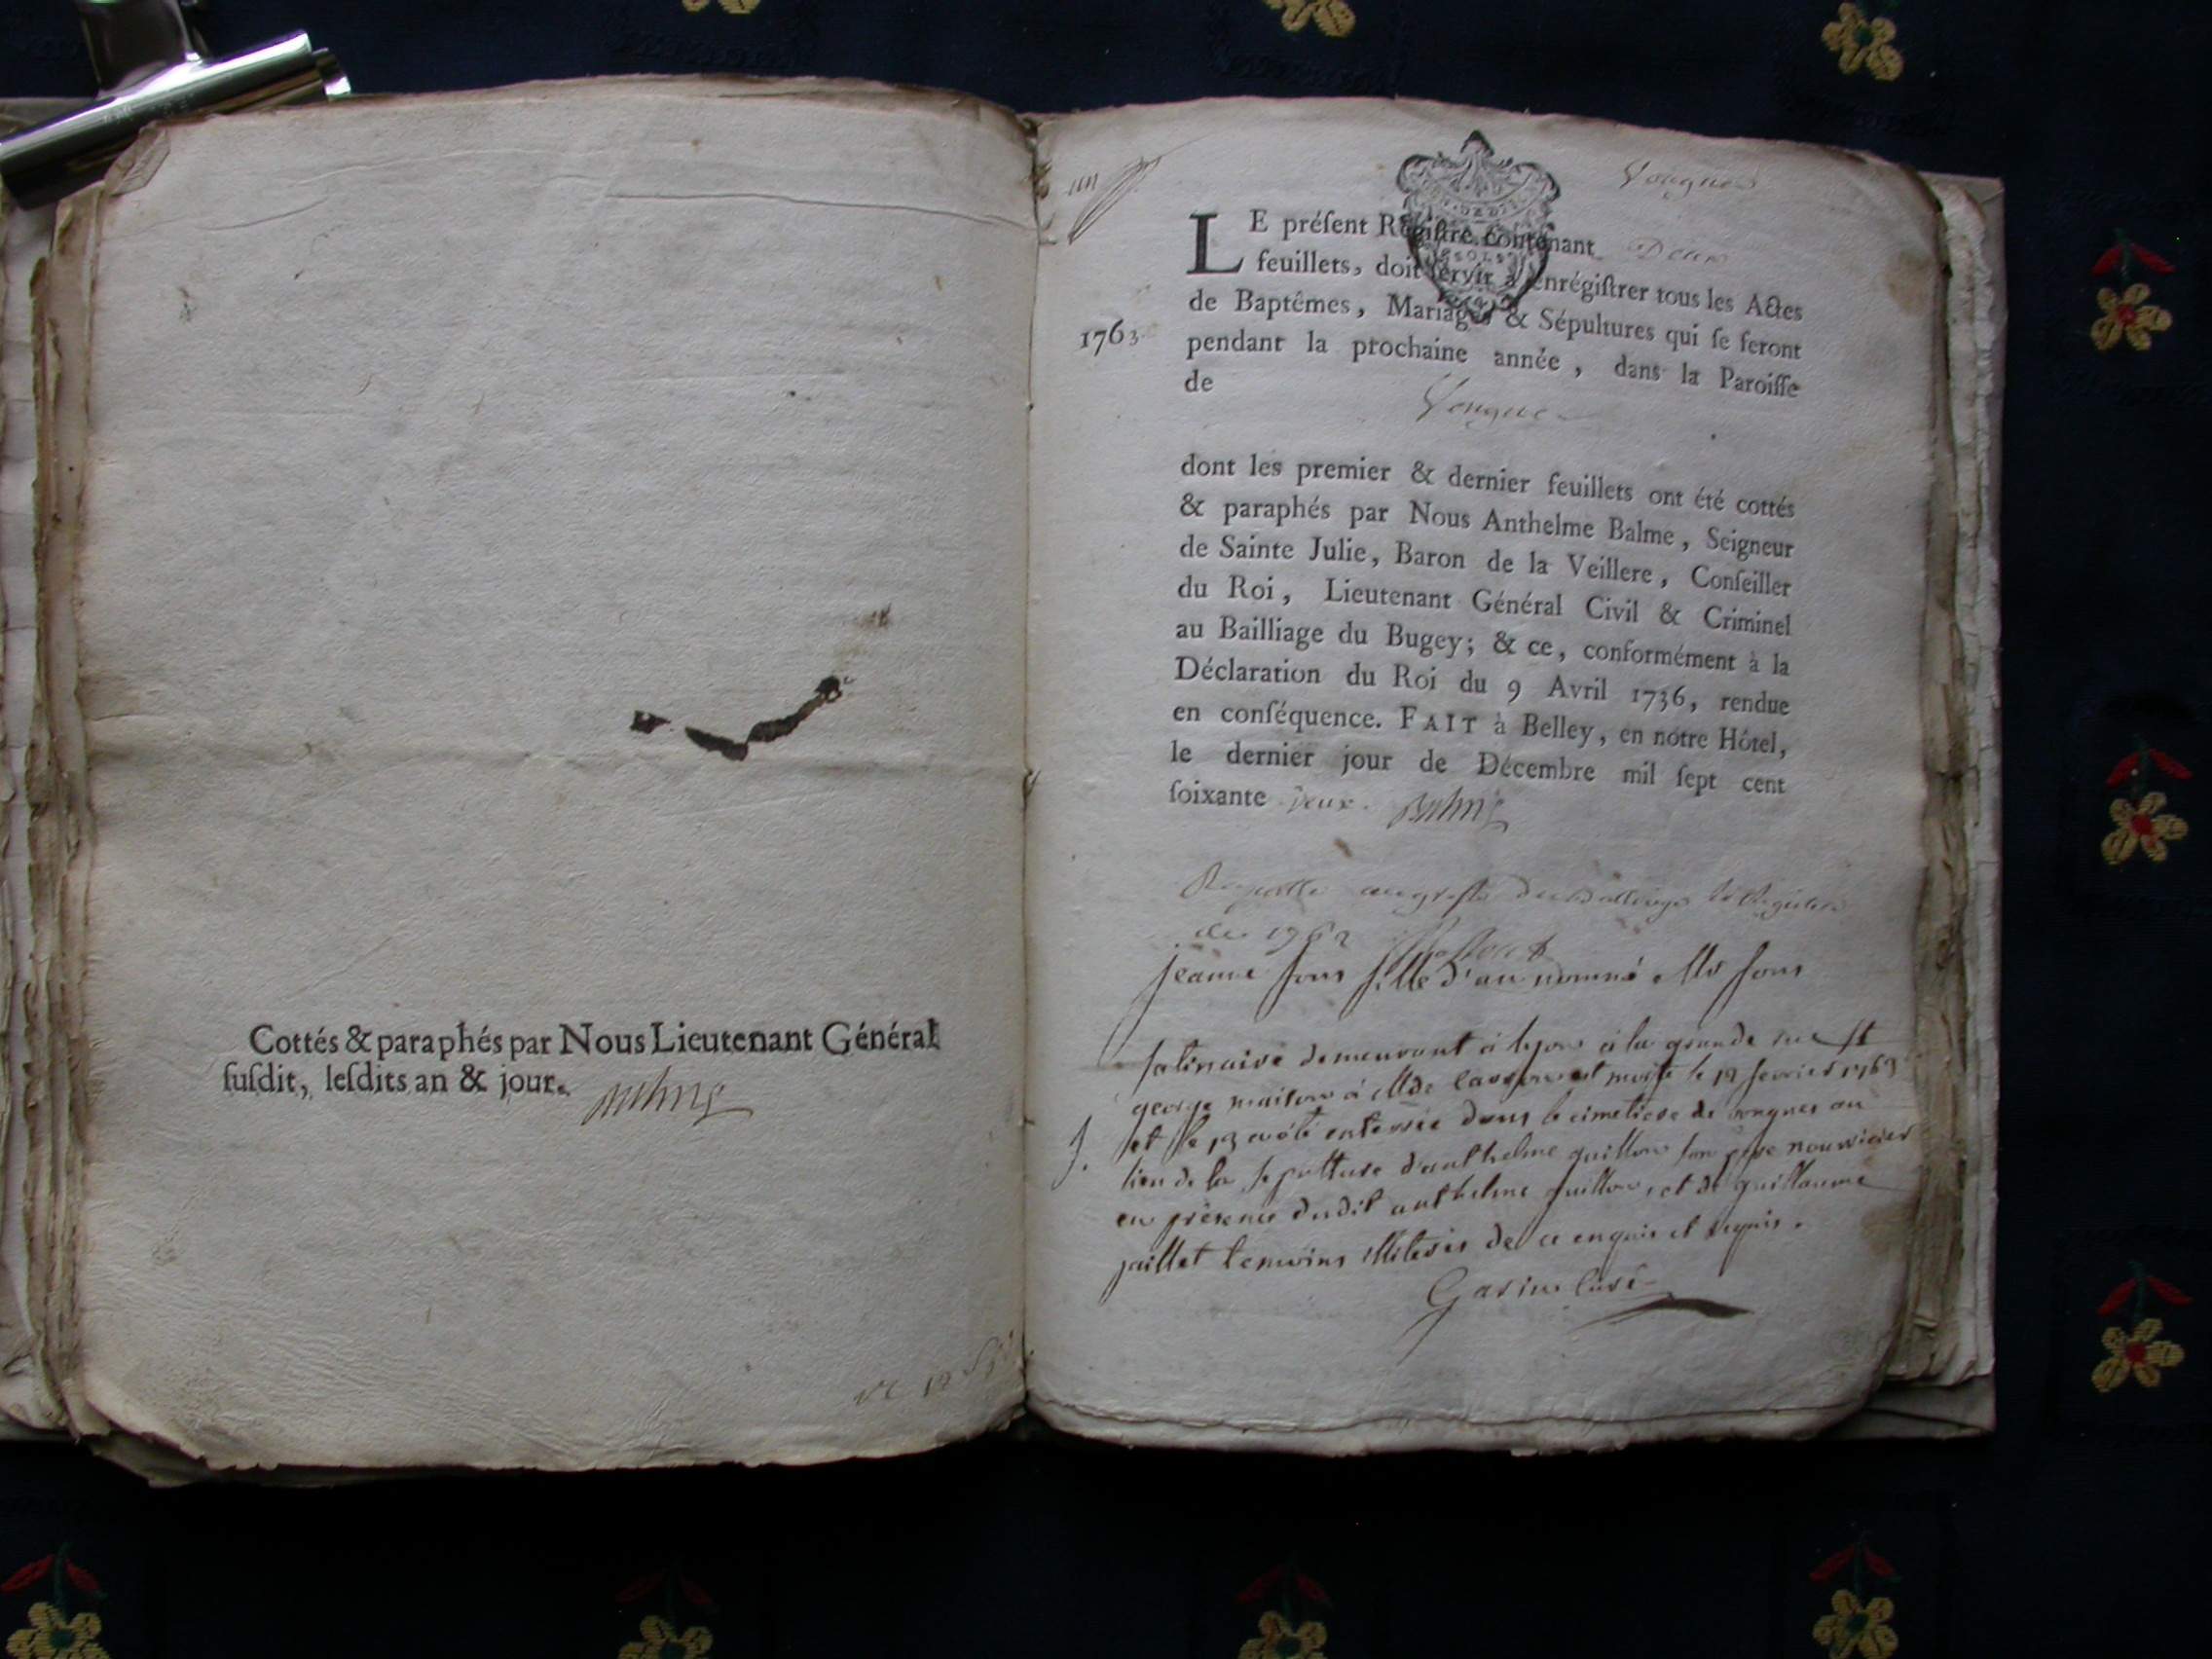 Cottés & paraphés par Nous Lieutenant Général
ſuſdit, leſdits an & jour.
Vongnes
LE préſent Regiſtre contenant Deux
feuillets, doit ſervir à enrégiſtrer tous les Actes
de Baptêmes, Mariages & Sépultures qui ſe feront
1763
pendant la prochaine année, dans la Paroiſſe
de
Vongnes
dont les premier & dernier feuillets ont été cottés
& paraphés par Nous Anthelme Balme, Seigneur
de Sainte Julie, Baron de la Veillere, Conſeiller
du Roi, Lieutenant Général Civil & Criminel
au Bailliage du Bugey; & ce, conformément à la
Déclaration du Roi du 9 Avril 1736, rendue
en conſéquence. FAIT à Belley, en notre Hôtel,
le dernier jour de Décembre mil ſept cent
ſoixante deux. Balme
au greffe du Bailliage le Registre
de 1762
jeanne fille d'un nommé
demeurant à lyon à la grande rue St
george maison à Mde est morte le 12 fevrier 1763
et le 13 a été enterrée dans le cimetiere de vongnes au
lieu de la sepulture d'anthelme guillon son pere nourricier
en présence dudit anthelme guillon, et de guillaume
jaillet temoins illiterés de ce enquis et requis.
Garin Curé